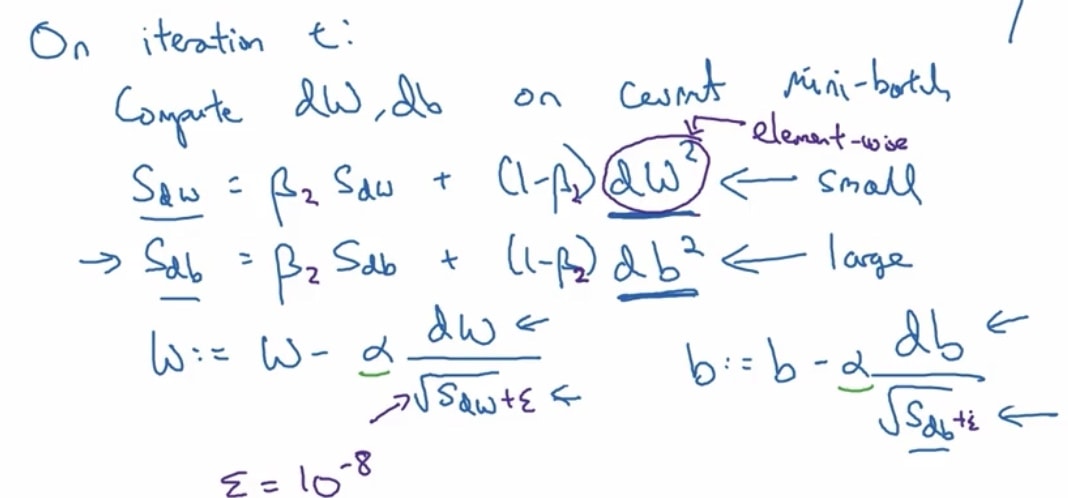 On iteration t:
Compute dW, db on current mini-batch
element-wise
S_dw = β₂ S_dw + (1-β₂) dW² ← small
→ S_db = β₂ S_db + (1-β₂) db² ← large
W := W - α dW / √S_dw + ε ← b := b - α db / √S_db + ε ←
ε = 10⁻⁸